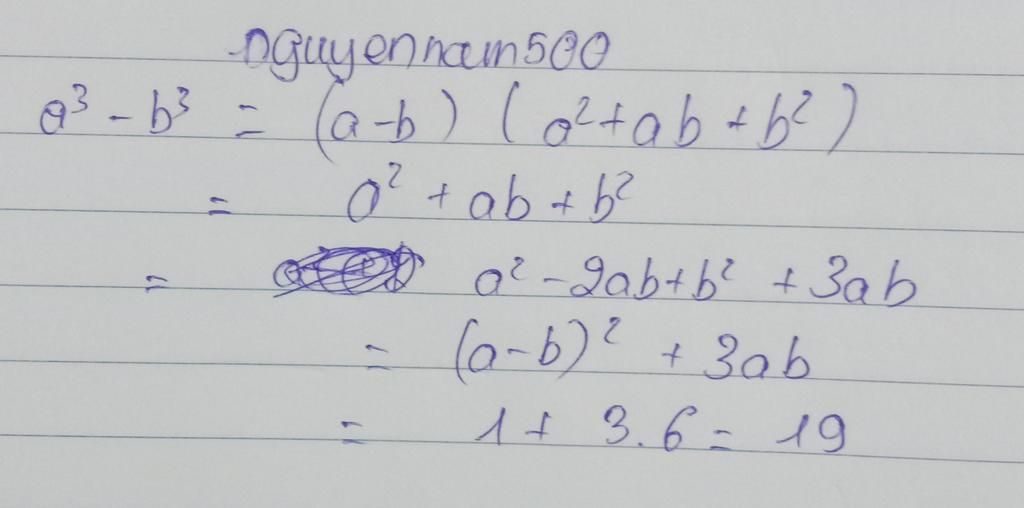 nguyennam500
a³ - b³ = (a-b) (a²+ab+b²)
= a² + ab + b²
= a² -2ab+b² +3ab
= (a-b)² + 3ab
= 1 + 3.6 = 19